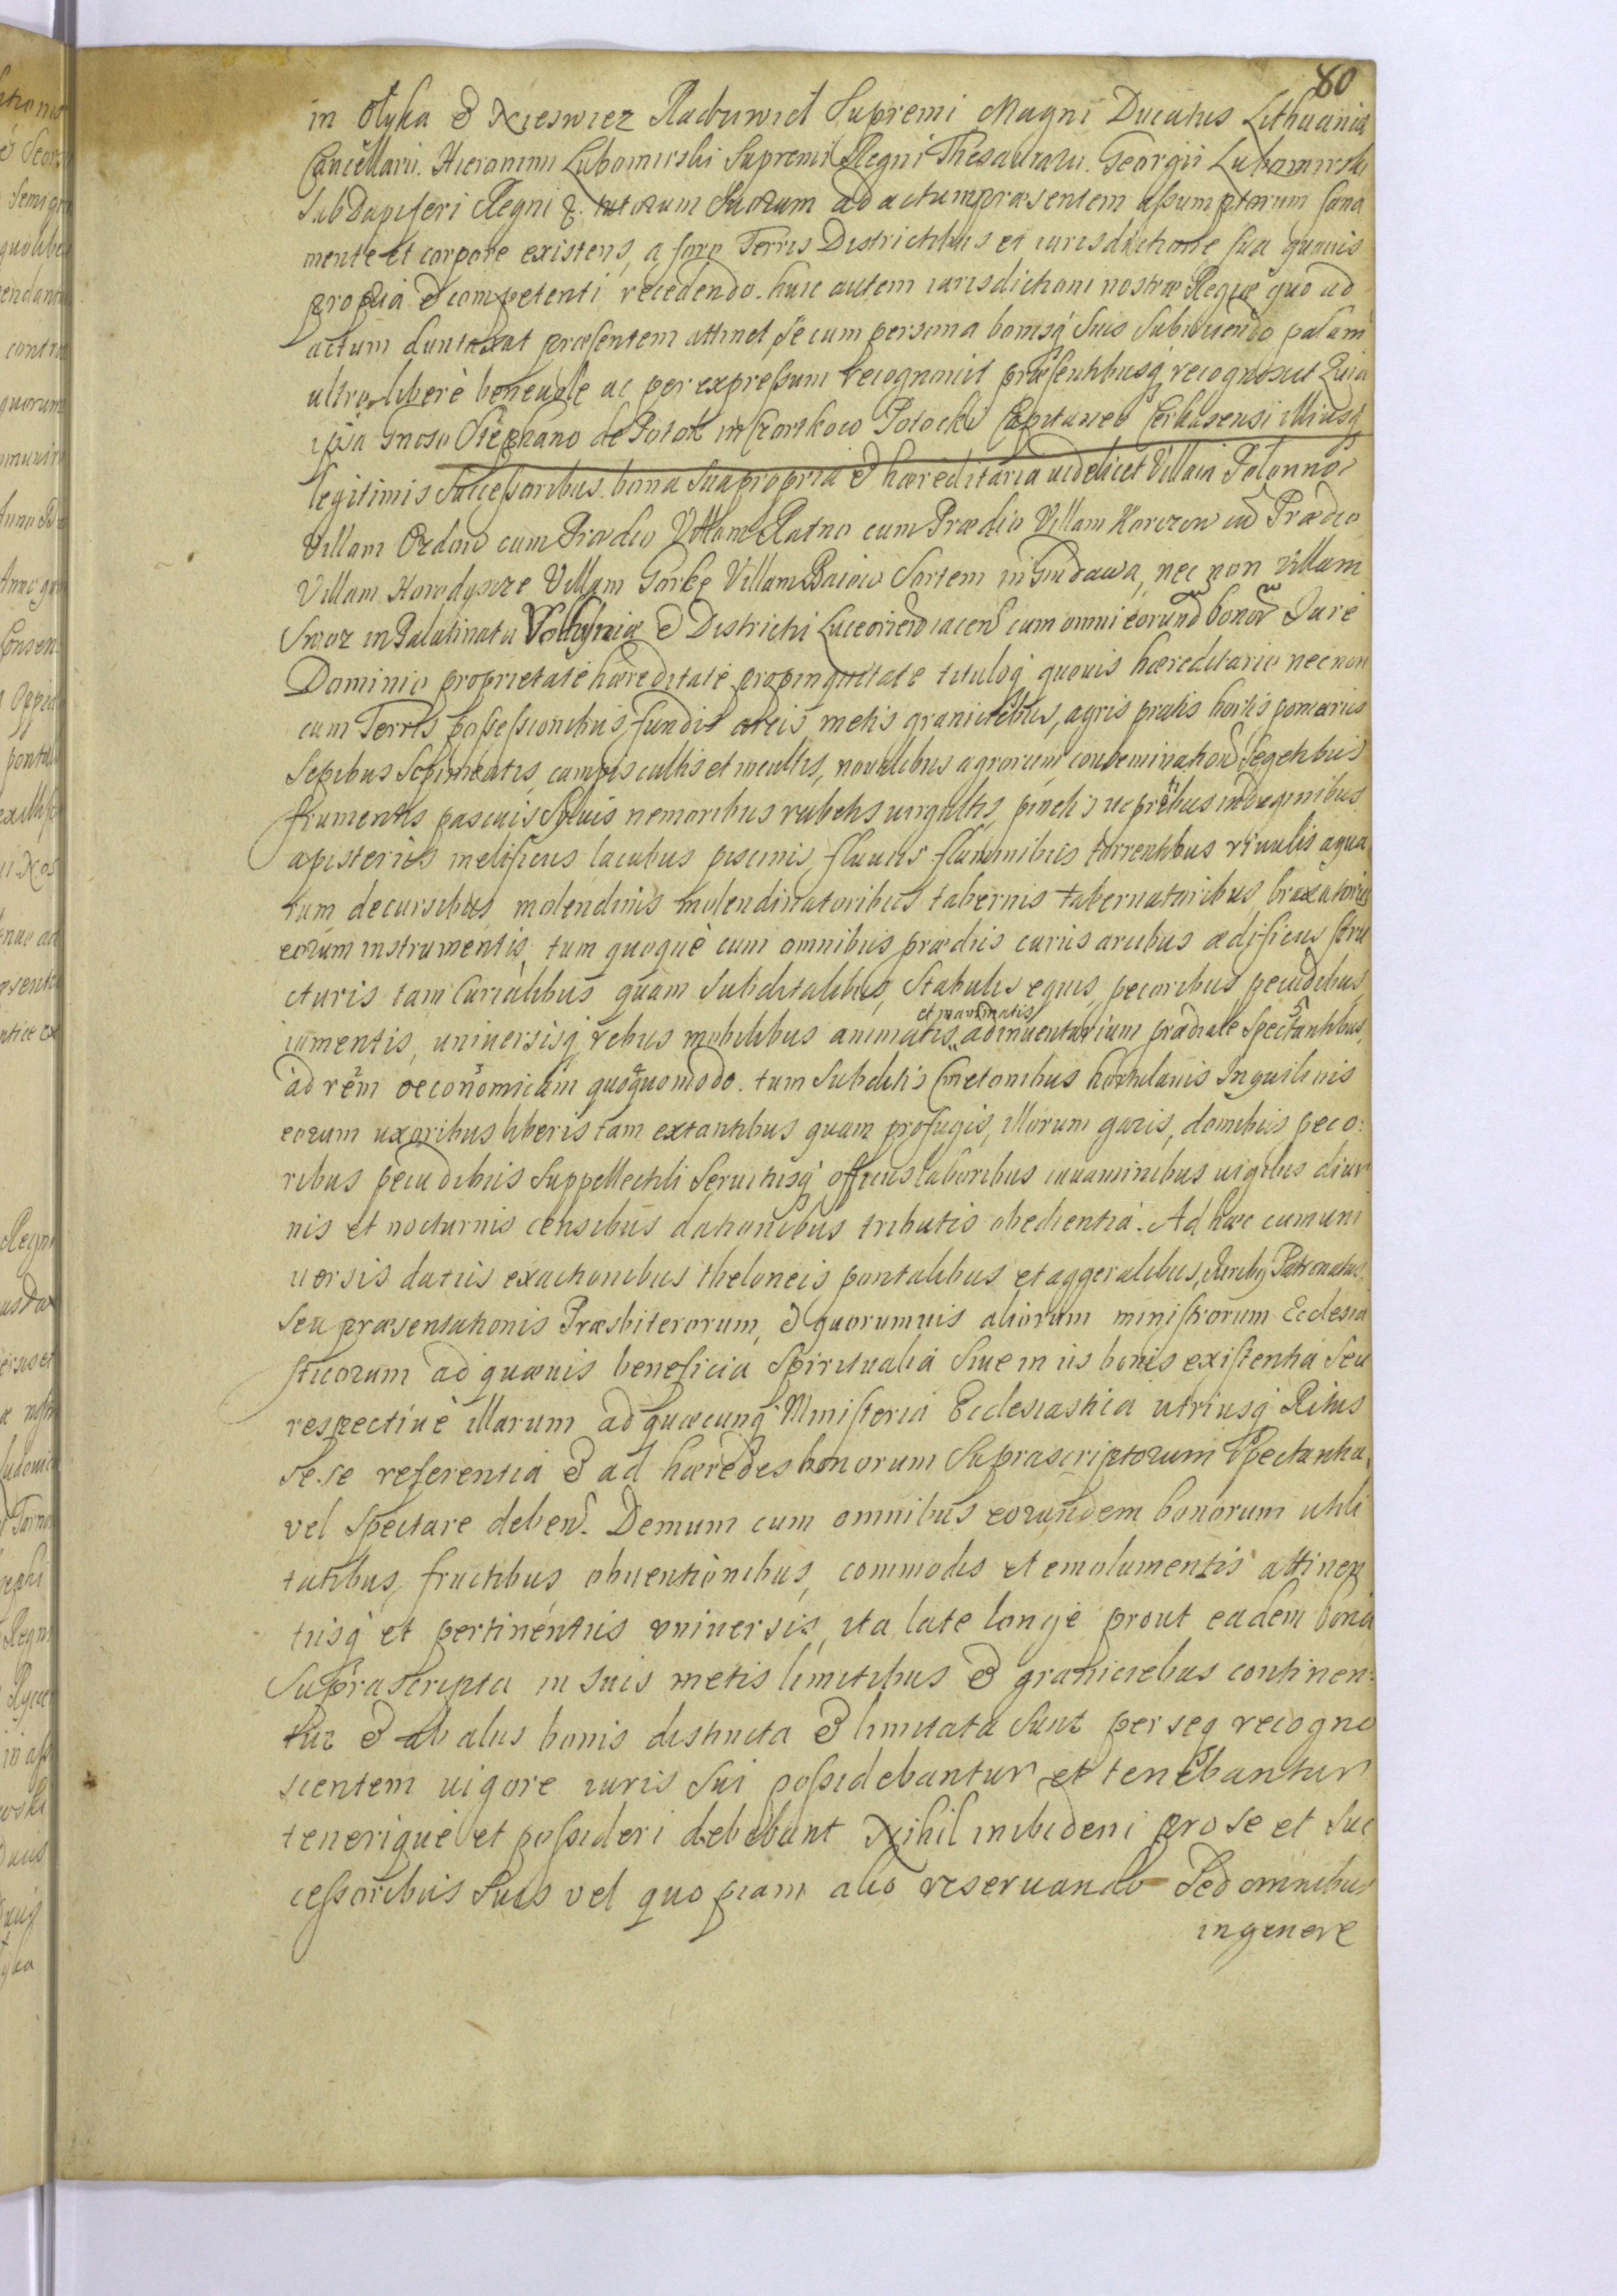 80
in Olyka & Nieswiez Radziwił Supremi Magni Ducatus Lithuaniæ
Cancellarii. Hieronimi Lubomirski Supremi Regni Thesaurarii. Georgii Lubomirski
SubDapiferi Regni &. tutorum Suorum ad actum præsentem assumptorum sana
mente et corpore existens, a foro Terris Districtibus et iurisdictione sua quauis
propria & competenti recedendo. huic autem iurisdictioni nostræ Regiæ quo ad
actum duntaxat præsentem attinet, se cum persona bonisq Suis Subiiciendo palam
ultro libere beneuole ac per expressum recognouit præsentibusq recognoscit Quia
ipsa Gnoso Stephano de Potok in Czortkow Potocki Capitaneo Cerkasensi illiusq
legitimis Successoribus bona Sua propria & hæreditaria uidelicet Villam Polonno
Villam Ozdow cum Prædio Villam Ratno cum Prædio Villam Korczow cu Prædio
Villam Horodyscze Villam Gorkę Villam Baiow Sortem in Gnidawa, nec non Villam
Smoz in Palatinatu Vollhyniæ & Districtu Luceorien iacen cum omni eorund bonor Iure
Dominio proprietate hæreditate propinquitate tituloq quouis hæreditario nec non
cum Terris possessionibus fundis areis metis graniciebus, agris pratis hortis pomariis
Sepibus Sepimentis, campis cultis et incultis, noualibus agrorum consemination Segetibus
frumentis pascuis Syluis nemoribus rubetis uirgultis, pinetis uepribus indaginibus
apisteriis melificiis lacubus piscinis, fluuiis fluminibus torrentibus riuulis aqua
rum decursibus molendinis molendinatoribus tabernis tabernatoribus braxatoriis
eorum instrumentis, tum quoque cum omnibus prædiis curiis arcibus ædificiis stru
cturis tam Curialibus quam Subditalibus, Stabulis equis, pecoribus pecudibus
et inanimatis
iumentis, uniuersisq rebus mobilibus animatis ad inuentarium prædiale Spectantibus,
ad rem oeconomicam quoquomodo. tum Subditis Cmetonibus hortulanis Inquilinis
eorum uxoribus liberis tam extantibus quam profugis, illorum gazis, domibus peco:
ribus pecudibus Suppellectili Seruitiisq officiis laboribus iuuaminibus uigiliis diur
nis et nocturnis censibus dationibus tributis obedientia. Ad hæc cum uni
uersis datiis exactionibus theloneis pontalibus et aggeralibus, Iuribq Patronatus,
seu præsentationis Præsbiterorum, & quorumuis aliorum ministrorum Ecclesia
sticorum ad quæuis beneficia Spiritualia Siue in iis bonis existentia Seu
respectiue illarum ad quæcunq Ministeria Ecclesiastica utriusq Ritus
se.se referentia & ad hæredes bonorum Suprascriptorum Spectantia
vel Spectare deben. Demum cum omnibus eorundem bonorum utili
tatibus, fructibus obuentionibus, commodis et emolumentis attinen
tiisq et pertinentiis vniuersis, ita late longe prout eadem bona
Suprascripta in Suis metis limitibus & graniciebus continen:
tur & ab aliis bonis distincta & limitata Sunt per seq recogno
scentem uigore iuris Sui possidebantur et tenebantur
tenerique et possideri debebunt Nihil inibidem pro se et Suc
cessoribus Suis vel quo piam alio reseruando Sed omnibus
in genere